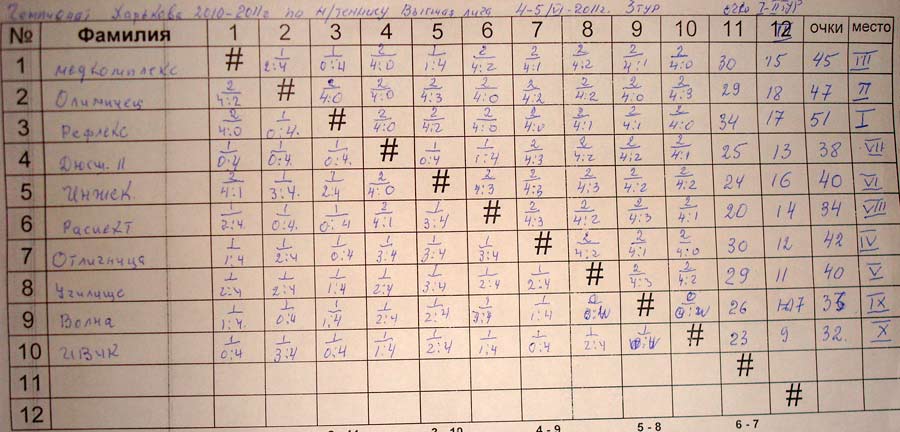 Чемпионат Харькова 2010-2011г по н/теннису Высшая лига 4-5/VI-2011г. 3тур
№ Фамилия 1 2 3 4 5 6 7 8 9 10 11 12 очки место
1 медкомплекс # 1 2:4 1 0:4 2 4:0 1 1:4 2 4:2 2 4:1 2 4:2 2 4:1 2 4:0 30 15 45 III
2 Олимпиец 2 4:2 # 2 4:0 2 4:0 2 4:3 2 4:0 2 4:2 2 4:2 2 4:0 2 4:3 29 18 47 II
3 Рефлекс 2 4:0 1 0:4. # 2 4:0 2 4:2 2 4:0 2 4:0 2 4:1 2 4:1 2 4:0 34 17 51 I
4 Дюсш. 11 1 0:4 1 0:4. 1 0:4. # 1 0:4 1 1:4 2 4:3 2 4:2 2 4:2 2 4:1 25 13 38 VII
5 Инжек. 2 4:1 1 3:4. 1 2:4 2 4:0 # 2 4:3 2 4:3 2 4:3 2 4:2 2 4:2 24 16 40 VI
6 Распект 1 2:4 1 0:4. 1 0:4 2 4:1 1 3:4 # 2 4:3 2 4:2 2 4:3 2 4:1 20 14 34 VIII
7 Отличница 1 1:4 1 2:4 1 0:4 1 3:4 1 3:4 1 3:4 # 2 4:2 2 4:1 2 4:0 30 12 42 IV
8 Училище 1 2:4 1 2:4 1 1:4 1 2:4 1 3:4 1 2:4 1 2:4 # 2 4:3 2 4:2 29 11 40 V
9 Волна 1 1:4. 1 0:4 1 1:4 1 2:4 1 2:4 1 3:4 1 1:4 # 26 IX
10 ИВЧК 1 0:4 1 3:4 1 0:4 1 1:4 1 2:4 1 1:4 1 0:4 1 2:4 # 23 9 32. X
11 #
12 #
4 - 9 5 - 8 6 - 7